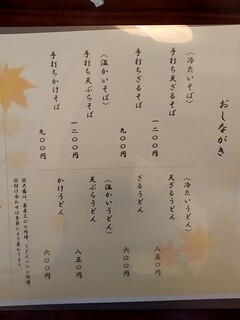 おしながき
〈冷たいそば〉
手打ち天ざるそば
一二〇〇円
手打ちざるそば
九〇〇円
〈温かいそば〉
手打ち天ぷらそば
一二〇〇円
手打ちかけそば
九〇〇円
〈冷たいうどん〉
天ざるうどん
八五〇円
ざるうどん
六〇〇円
〈温かいうどん〉
天ぷらうどん
八五〇円
かけうどん
六〇〇円
※大盛は、蕎麦三〇〇円増、うどん一〇〇円増。